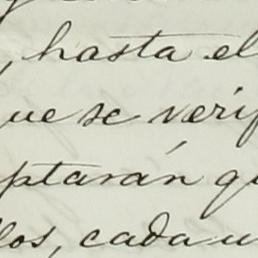 , hasta el
ue se verif
ptarán q
los, cada u